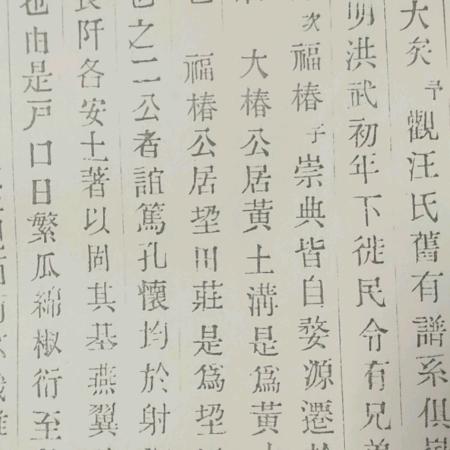 大矣予觀汪氏舊有譜系俱
明洪武初年下徙民令有兄弟
次福椿子崇典皆自婺源遷
大椿公居黃土溝是爲黃土
福椿公居垩田莊是爲垩
之二公者誼篤孔懷均於射
阡各安土著以固其基燕翼
也由是戶口日繁瓜綿椒衍至